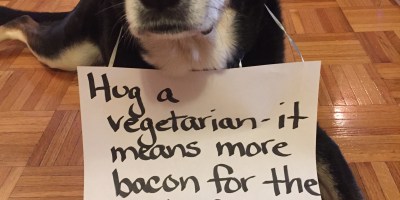 Hug a
vegetarian-it
means more
bacon for the